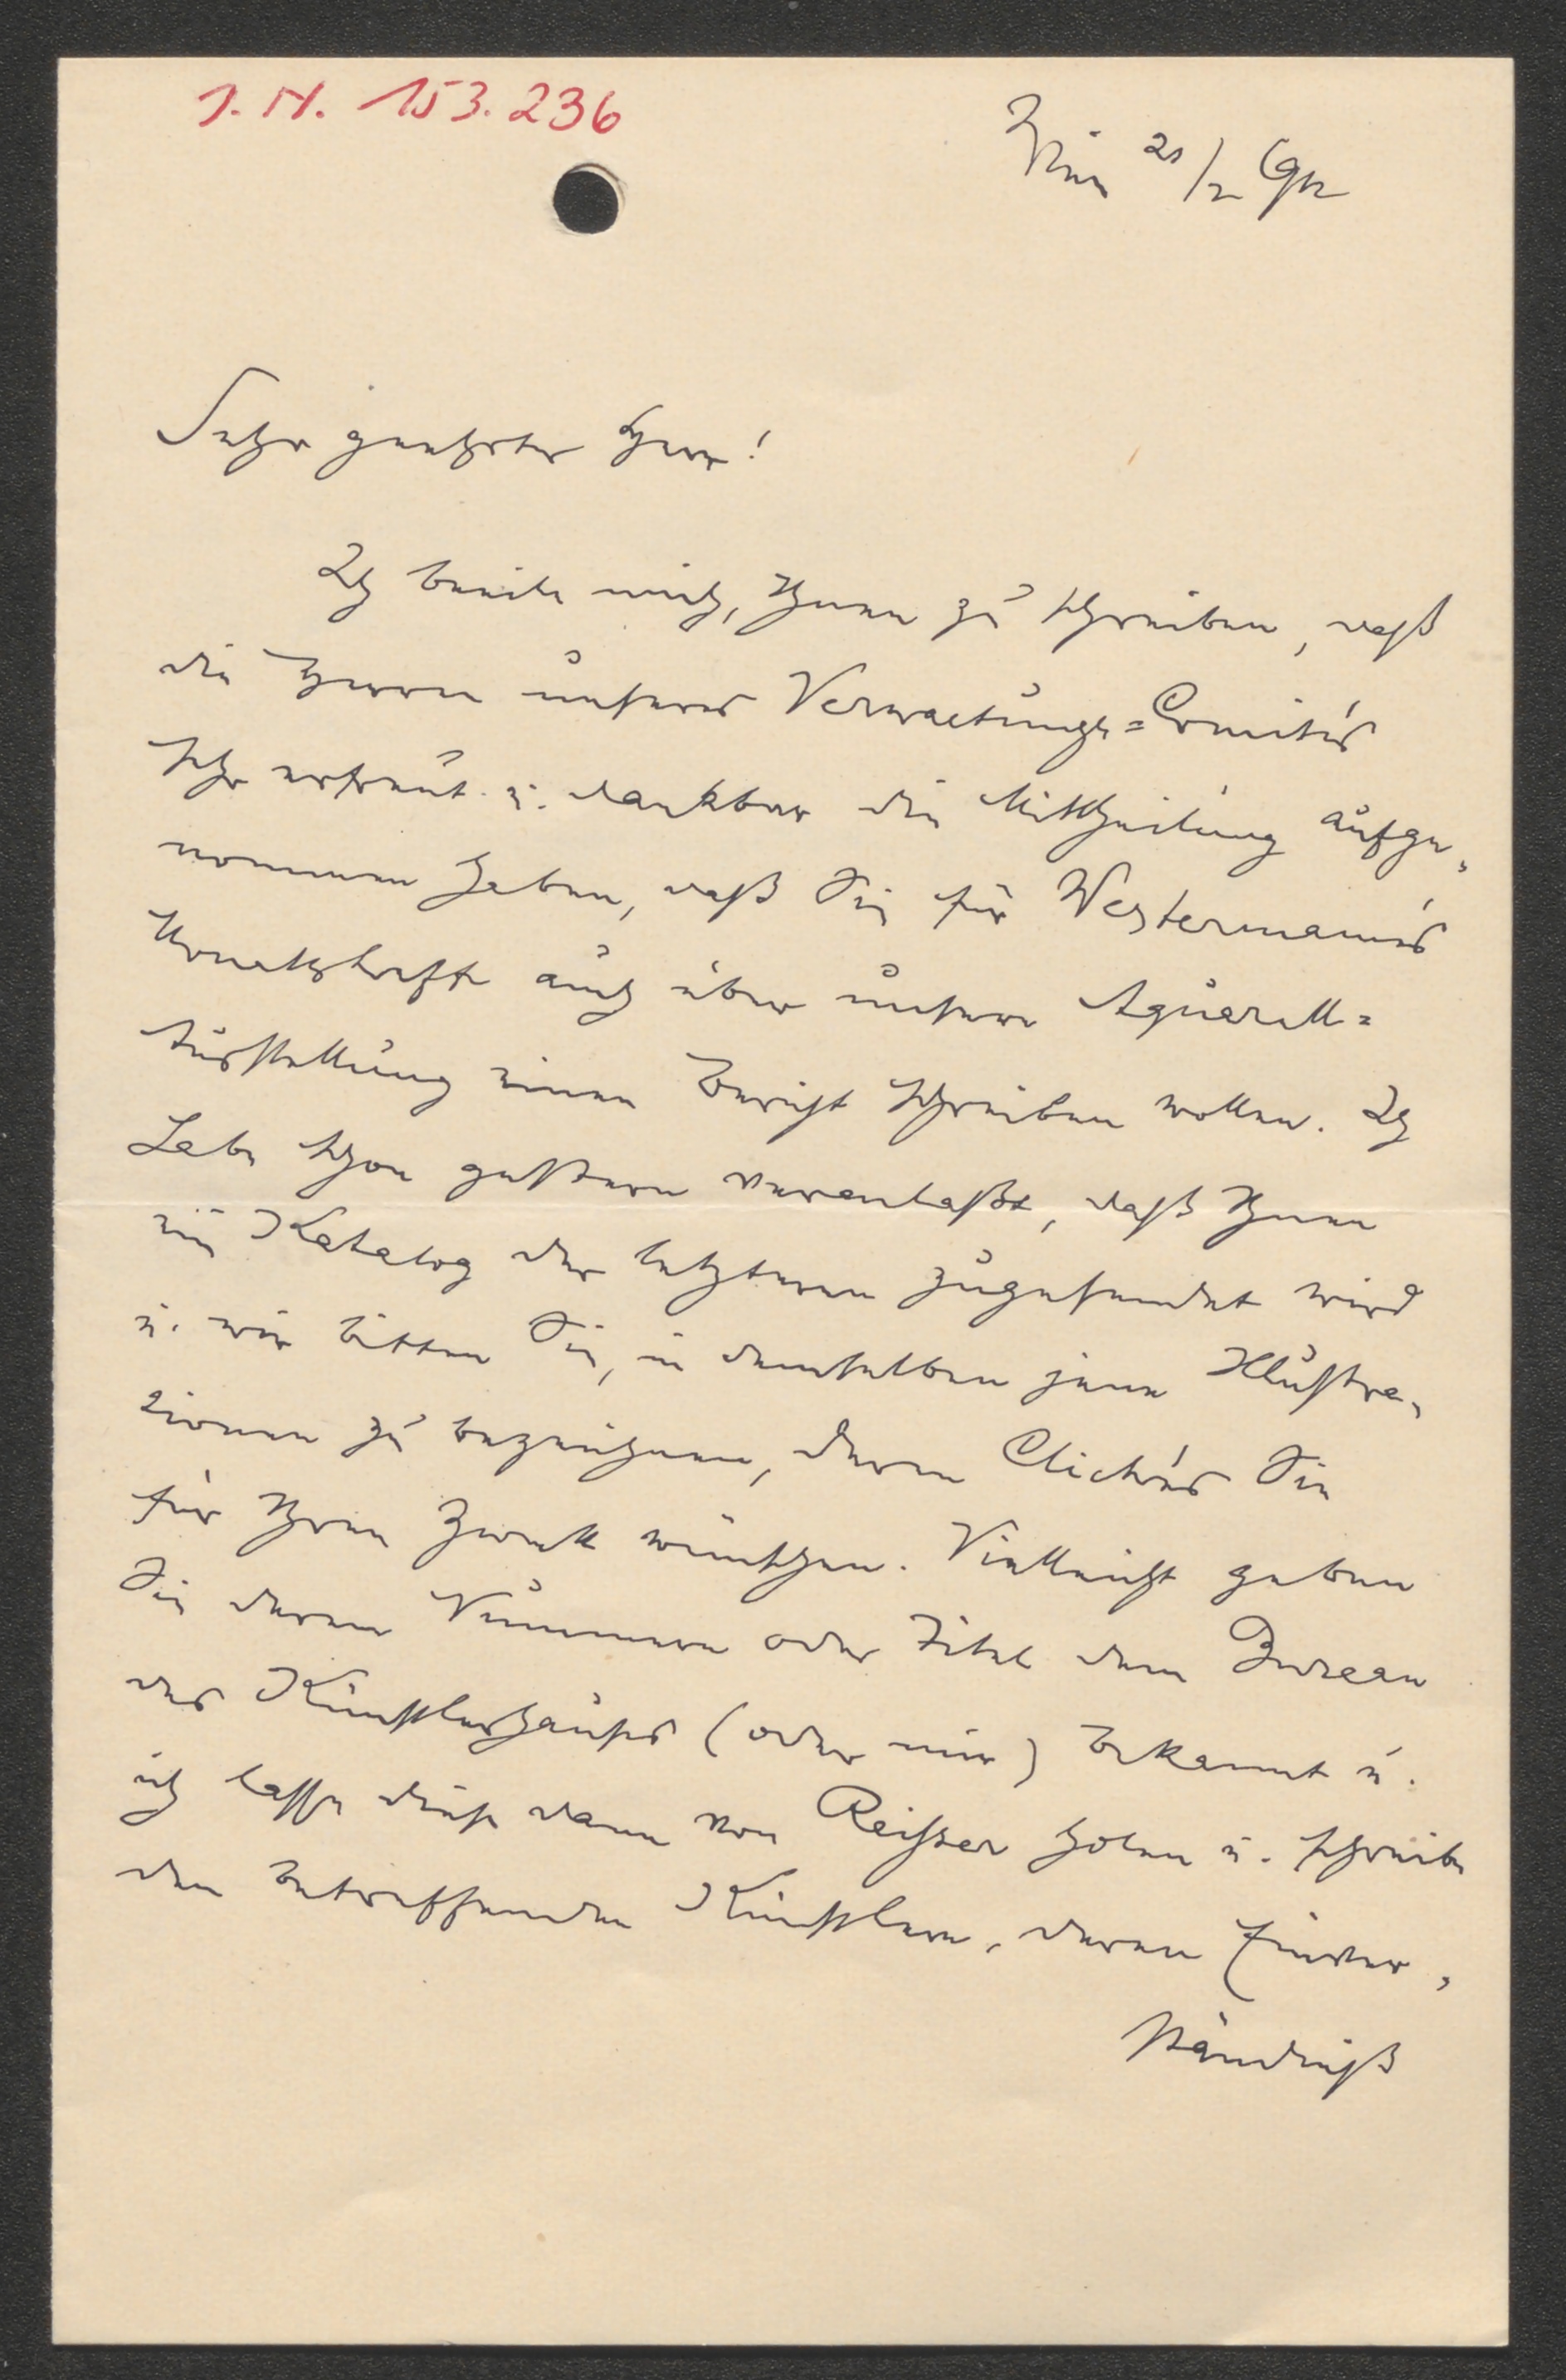 J. N. 153.236
Wien 21/2 92
Sehr geehrter Herr!
Ich beeile mich, Ihnen zu schreiben, daß
die Herren unseres Verwaltungs=Comités
sehr erfreut u. dankbar die Mittheilung aufge„
nommen haben, daß Sie für Westermann's
Monatshefte auch über unsere Aquarell=
Ausstellung einen Bericht schreiben wollen. Ich
habe schon gestern veranlaßt, daß Ihnen
ein Katalog der letzteren zugesendet wird
u. wir bitten Sie, in demselben jene Illustra„
zionen zu bezeichnen, deren Clichés Sie
für Ihren Zweck wünschen. Vielleicht geben
Sie deren Nummern oder Titel dem Bureau
des Künstlerhauses (oder mir) bekannt u.
ich lasse diese dann von Reißer holen u. schreibe
den betreffenden Künstlern, deren Einver„
ständniß